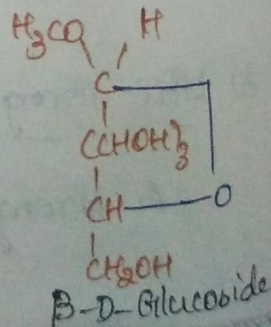 H₃CO H
C
(CHOH)₃
CH O
CH₂OH
β-D-Glucoside